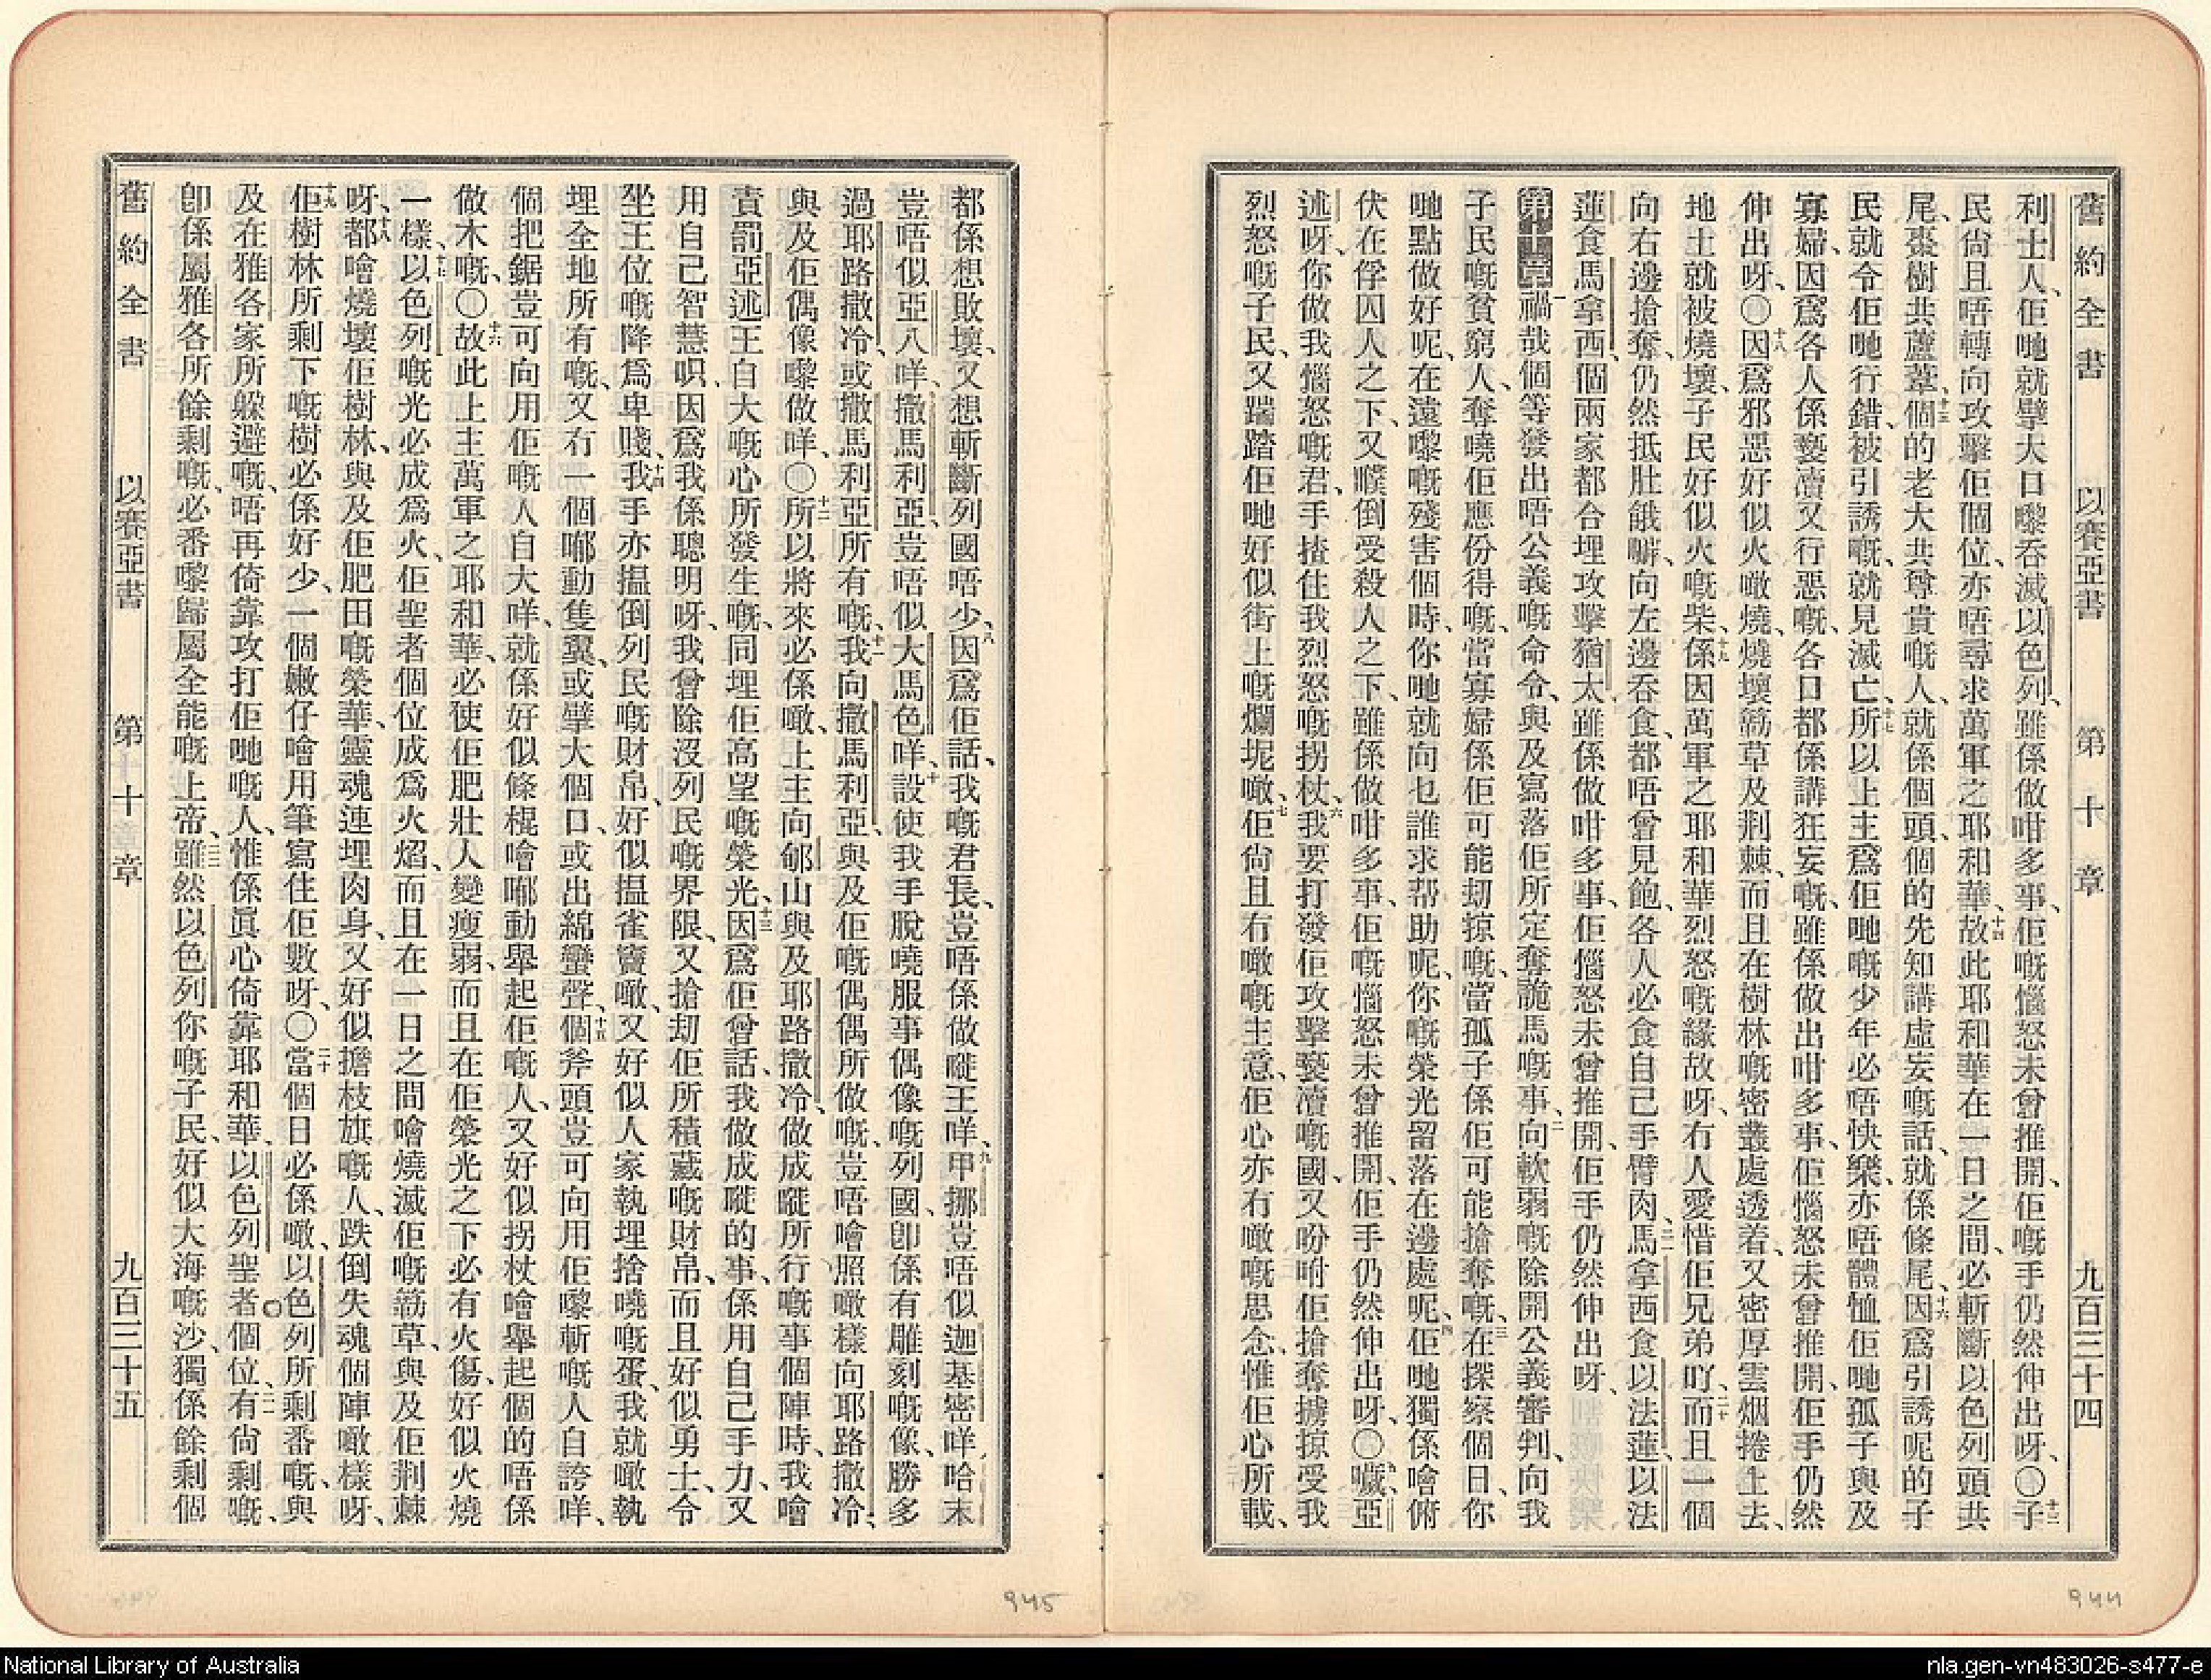 舊約全書 以賽亞書 第十章 九百三十四
利士人、佢哋就擘大口嚟吞滅以色列、雖係做咁多事、佢嘅惱怒未曾推開、佢嘅手仍然伸出呀、〇十三子
民尙且唔轉向攻擊佢個位、亦唔尋求萬軍之耶和華、十四故此耶和華在一日之間、必斬斷以色列頭共
尾、棗樹共蘆葦、十五個的老大共尊貴嘅人、就係個頭、個的先知講虛妄嘅話、就係條尾、十六因爲引誘呢的子
民就令佢哋行錯、被引誘嘅、就見滅亡、十七所以上主爲佢哋嘅少年必唔快樂、亦唔體恤佢哋孤子與及
寡婦、因爲各人係褻瀆又行惡嘅、各口都係講狂妄嘅、雖係做出咁多事、佢惱怒未曾推開、佢手仍然
伸出呀、〇十八因爲邪惡好似火噉燒、燒壞簕草及荆棘、而且在樹林嘅密叢處透着、又密厚雲烟捲上去、
地土就被燒壞、子民好似火嘅柴、十九係因萬軍之耶和華烈怒嘅緣故呀、冇人愛惜佢兄弟吖、二十而且一個
向右邊搶奪、仍然抵肚餓嘞、向左邊吞食、都唔曾見飽、各人必食自己手臂肉、二一馬拿西食以法蓮、以法
蓮食馬拿西、個兩家都合埋攻擊猶太、雖係做咁多事、佢惱怒未曾推開、佢手仍然伸出呀、
第十章 一禍哉個等發出唔公義嘅命令、與及寫落佢所定奪詭馬嘅事、二向軟弱嘅除開公義審判、向我
子民嘅貧窮人、奪嘵佢應份得嘅、當寡婦係佢可能刼掠嘅、當孤子係佢可能搶奪嘅、三在探察個日、你
哋點做好呢、在遠嚟嘅殘害個時、你哋就向乜誰求帮助呢、你嘅榮光留落在邊處呢、四佢哋獨係噲俯
伏在俘囚人之下、又㬥倒受殺人之下、雖係做咁多事、佢嘅惱怒未曾推開、佢手仍然伸出呀、〇五嚱、亞
述呀、你做我惱怒嘅君、手揸住我烈怒嘅拐杖、六我要打發佢攻擊褻瀆嘅國、又吩咐佢搶奪擄掠受我
烈怒嘅子民、又踹踏佢哋好似街上嘅爛坭噉、七佢尙且冇噉嘅主意、佢心亦冇噉嘅思念、惟佢心所載、
都係想敗壞、又想斬斷列國唔少、八因爲佢話、我嘅君長、豈唔係做嘥王咩、九甲挪豈唔似迦基密咩、哈末
豈唔似亞八咩、撒馬利亞、豈唔似大馬色咩、十設使我手脫嘵服事偶像嘅列國、卽係有雕刻嘅像、勝多
過耶路撒冷、或撒馬利亞所有嘅、十一我向撒馬利亞、與及佢嘅偶偶所做嘅、豈唔噲照噉樣向耶路撒冷、
與及佢偶像嚟做咩、〇十二所以將來必係噉、上主向郇山與及耶路撒冷、做成嘥所行嘅事個陣時、我噲
責罰亞述王自大嘅心所發生嘅、同埋佢高望嘅榮光、十三因爲佢曾話、我做成嘥的事、係用自己手力、又
用自己智慧呮、因爲我係聰明呀、我曾除沒列民嘅界限、又搶刼佢所積藏嘅財帛、而且好似勇士、令
坐王位嘅降爲卑賤、十四我手亦揾倒列民嘅財帛、好似揾雀竇噉、又好似人家執埋捨嘵嘅蛋、我就噉執
埋全地所有嘅、又冇一個郁動隻翼、或擘大個口、或出綿蠻聲、十五個斧頭豈可向用佢嚟斬嘅人自誇咩、
個把鋸豈可向用佢嘅人自大咩、就係好似條棍噲郁動舉起佢嘅人、又好似拐杖噲舉起個的唔係
做木嘅、〇十六故此上主萬軍之耶和華、必使佢肥壯人變瘦弱、而且在佢榮光之下必有火傷、好似火燒
一樣、十七以色列嘅光必成爲火、佢聖者個位成爲火焰、而且在一日之間噲燒滅佢嘅簕草、與及佢荆棘
呀、十八都噲燒壞佢樹林、與及佢肥田嘅榮華、靈魂連埋肉身、又好似擔枝旗嘅人、跌倒失魂個陣噉樣呀、
十九佢樹林所剩下嘅樹、必係好少、一個嫩仔噲用筆寫住佢數呀、〇二十當個日必係噉、以色列所剩番嘅、與
及在雅各家所躱避嘅、唔再倚靠攻打佢哋嘅人、惟係眞心倚靠耶和華、以色列聖者個位、二一有尙剩嘅、
卽係屬雅各所餘剩嘅、必番嚟歸屬全能嘅上帝、二二雖然以色列你嘅子民、好似大海嘅沙、獨係餘剩個
舊約全書 以賽亞書 第十章 九百三十五
945
944
National Library of Australia
nla.gen-vn483026-s477-e